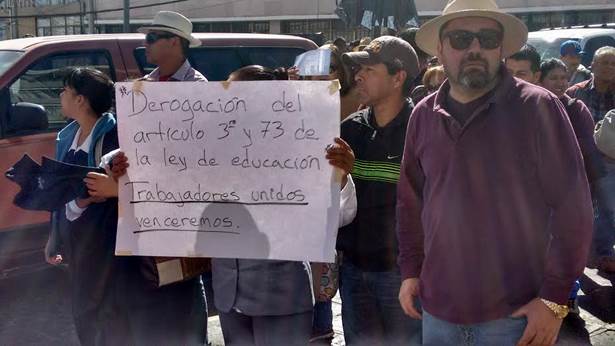 *Derogación del
artículo 3º y 73 de
la ley de educación
Trabajadores unidos
venceremos.